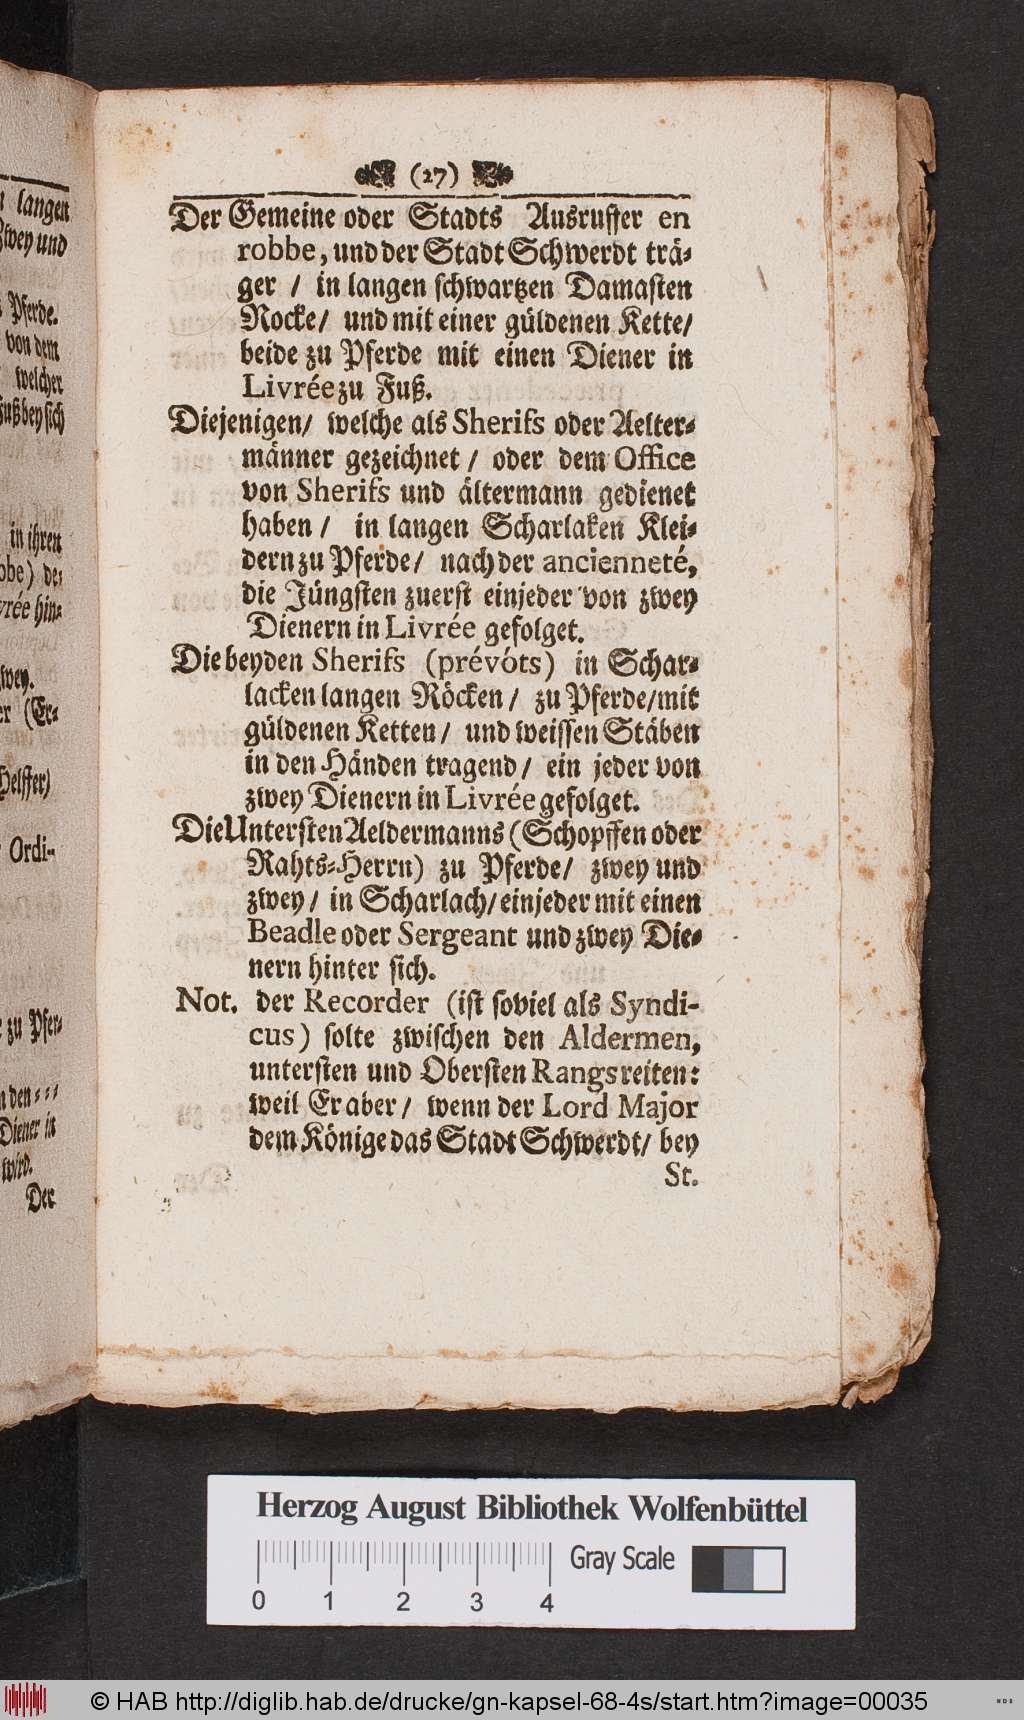 (27)
Der Gemeine oder Stadts Ausruffer en
robbe, und der Stadt Schwerdt trä-
ger / in langen schwartzen Damasten
Rocke / und mit einer güldenen Kette /
beide zu Pferde mit einen Diener in
Livrée zu Fuß.
Diejenigen / welche als Sherifs oder Aelter-
männer gezeichnet / oder dem Office
von Sherifs und ältermann gedienet
haben / in langen Scharlaken Klei-
dern zu Pferde / nach der ancienneté,
die Jüngsten zuerst einjeder von zwey
Dienern in Livrée gefolget.
Die beyden Sherifs (prévóts) in Schar-
lacken langen Röcken / zu Pferde / mit
güldenen Ketten / und weissen Stäben
in den Händen tragend / ein jeder von
zwey Dienern in Livrée gefolget.
Die Untersten Aeldermanns (Schopffen oder
Rahts-Herrn) zu Pferde / zwey und
zwey / in Scharlach / einjeder mit einen
Beadle oder Sergeant und zwey Die-
nern hinter sich.
Not. der Recorder (ist soviel als Syndi-
cus) solte zwischen den Aldermen,
untersten und Obersten Rangs reiten:
weil Er aber / wenn der Lord Major
dem Könige das Stadt Schwerdt / bey
St.
langen
zwey und
Pferde.
von dem
welcher
Fuß bey sich
in ihren
de-
hin-
zwey.
(Er-
Helffer)
Ordi-
zu Pfer-
den
Diener in
wird.
Der
Herzog August Bibliothek Wolfenbüttel
Gray Scale
0 1 2 3 4
© HAB http://diglib.hab.de/drucke/gn-kapsel-68-4s/start.htm?image=00035